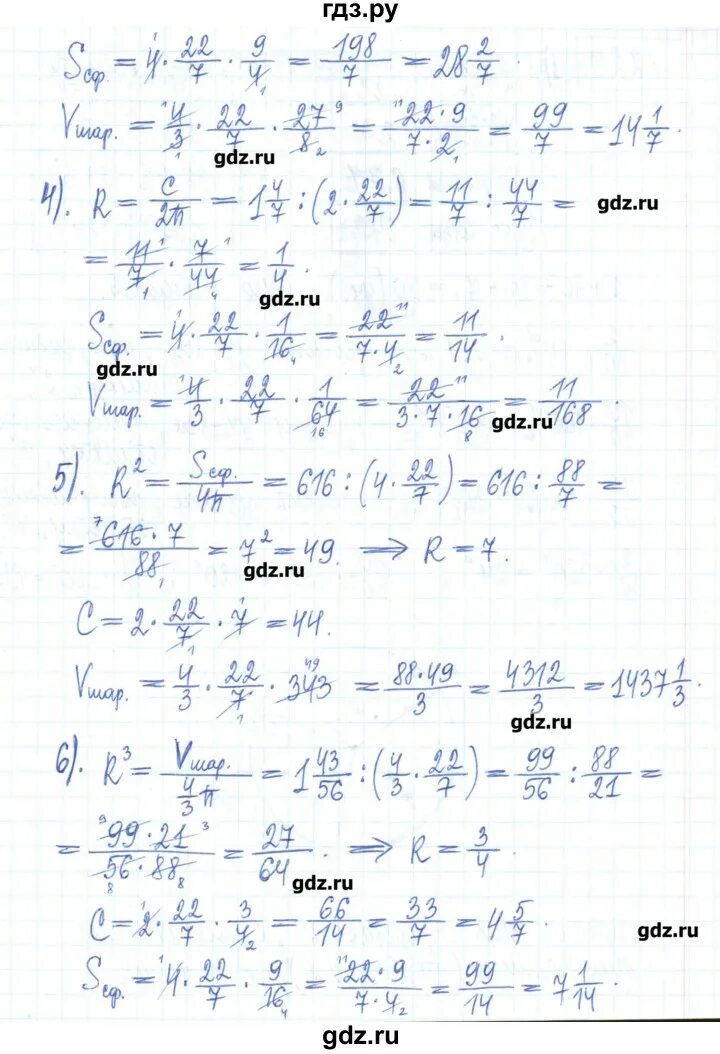 гдз.ру
Sсф. = 4 · 22/7 · 9/4 = 198/7 = 28 2/7.
Vшар. = 4/3 · 22/7 · 27/8 = 22·9/7·2 = 99/7 = 14 1/7.
gdz.ru
4). R = C/2π = 1 4/7 : (2 · 22/7) = 11/7 : 44/7 =
gdz.ru
= 11/7 · 7/44 = 1/4.
gdz.ru
Sсф. = 4 · 22/7 · 1/16 = 22/7·4 = 11/14.
gdz.ru
Vшар. = 4/3 · 22/7 · 1/64 = 22/3·7·16 = 11/168.
gdz.ru
5). R² = Sсф./4π = 616 : (4 · 22/7) = 616 : 88/7 =
= 616·7/88 = 7² = 49. ⟹ R = 7.
gdz.ru
C = 2 · 22/7 · 7 = 44.
Vшар. = 4/3 · 22/7 · 343 = 88·49/3 = 4312/3 = 1437 1/3.
gdz.ru
6). R³ = Vшар./(4/3 π) = 1 43/56 : (4/3 · 22/7) = 99/56 : 88/21 =
= 99·21/56·88 = 27/64. ⟹ R = 3/4.
gdz.ru
C = 2 · 22/7 · 3/4 = 66/14 = 33/7 = 4 5/7.
gdz.ru
Sсф. = 4 · 22/7 · 9/16 = 22·9/7·4 = 99/14 = 7 1/14.
gdz.ru